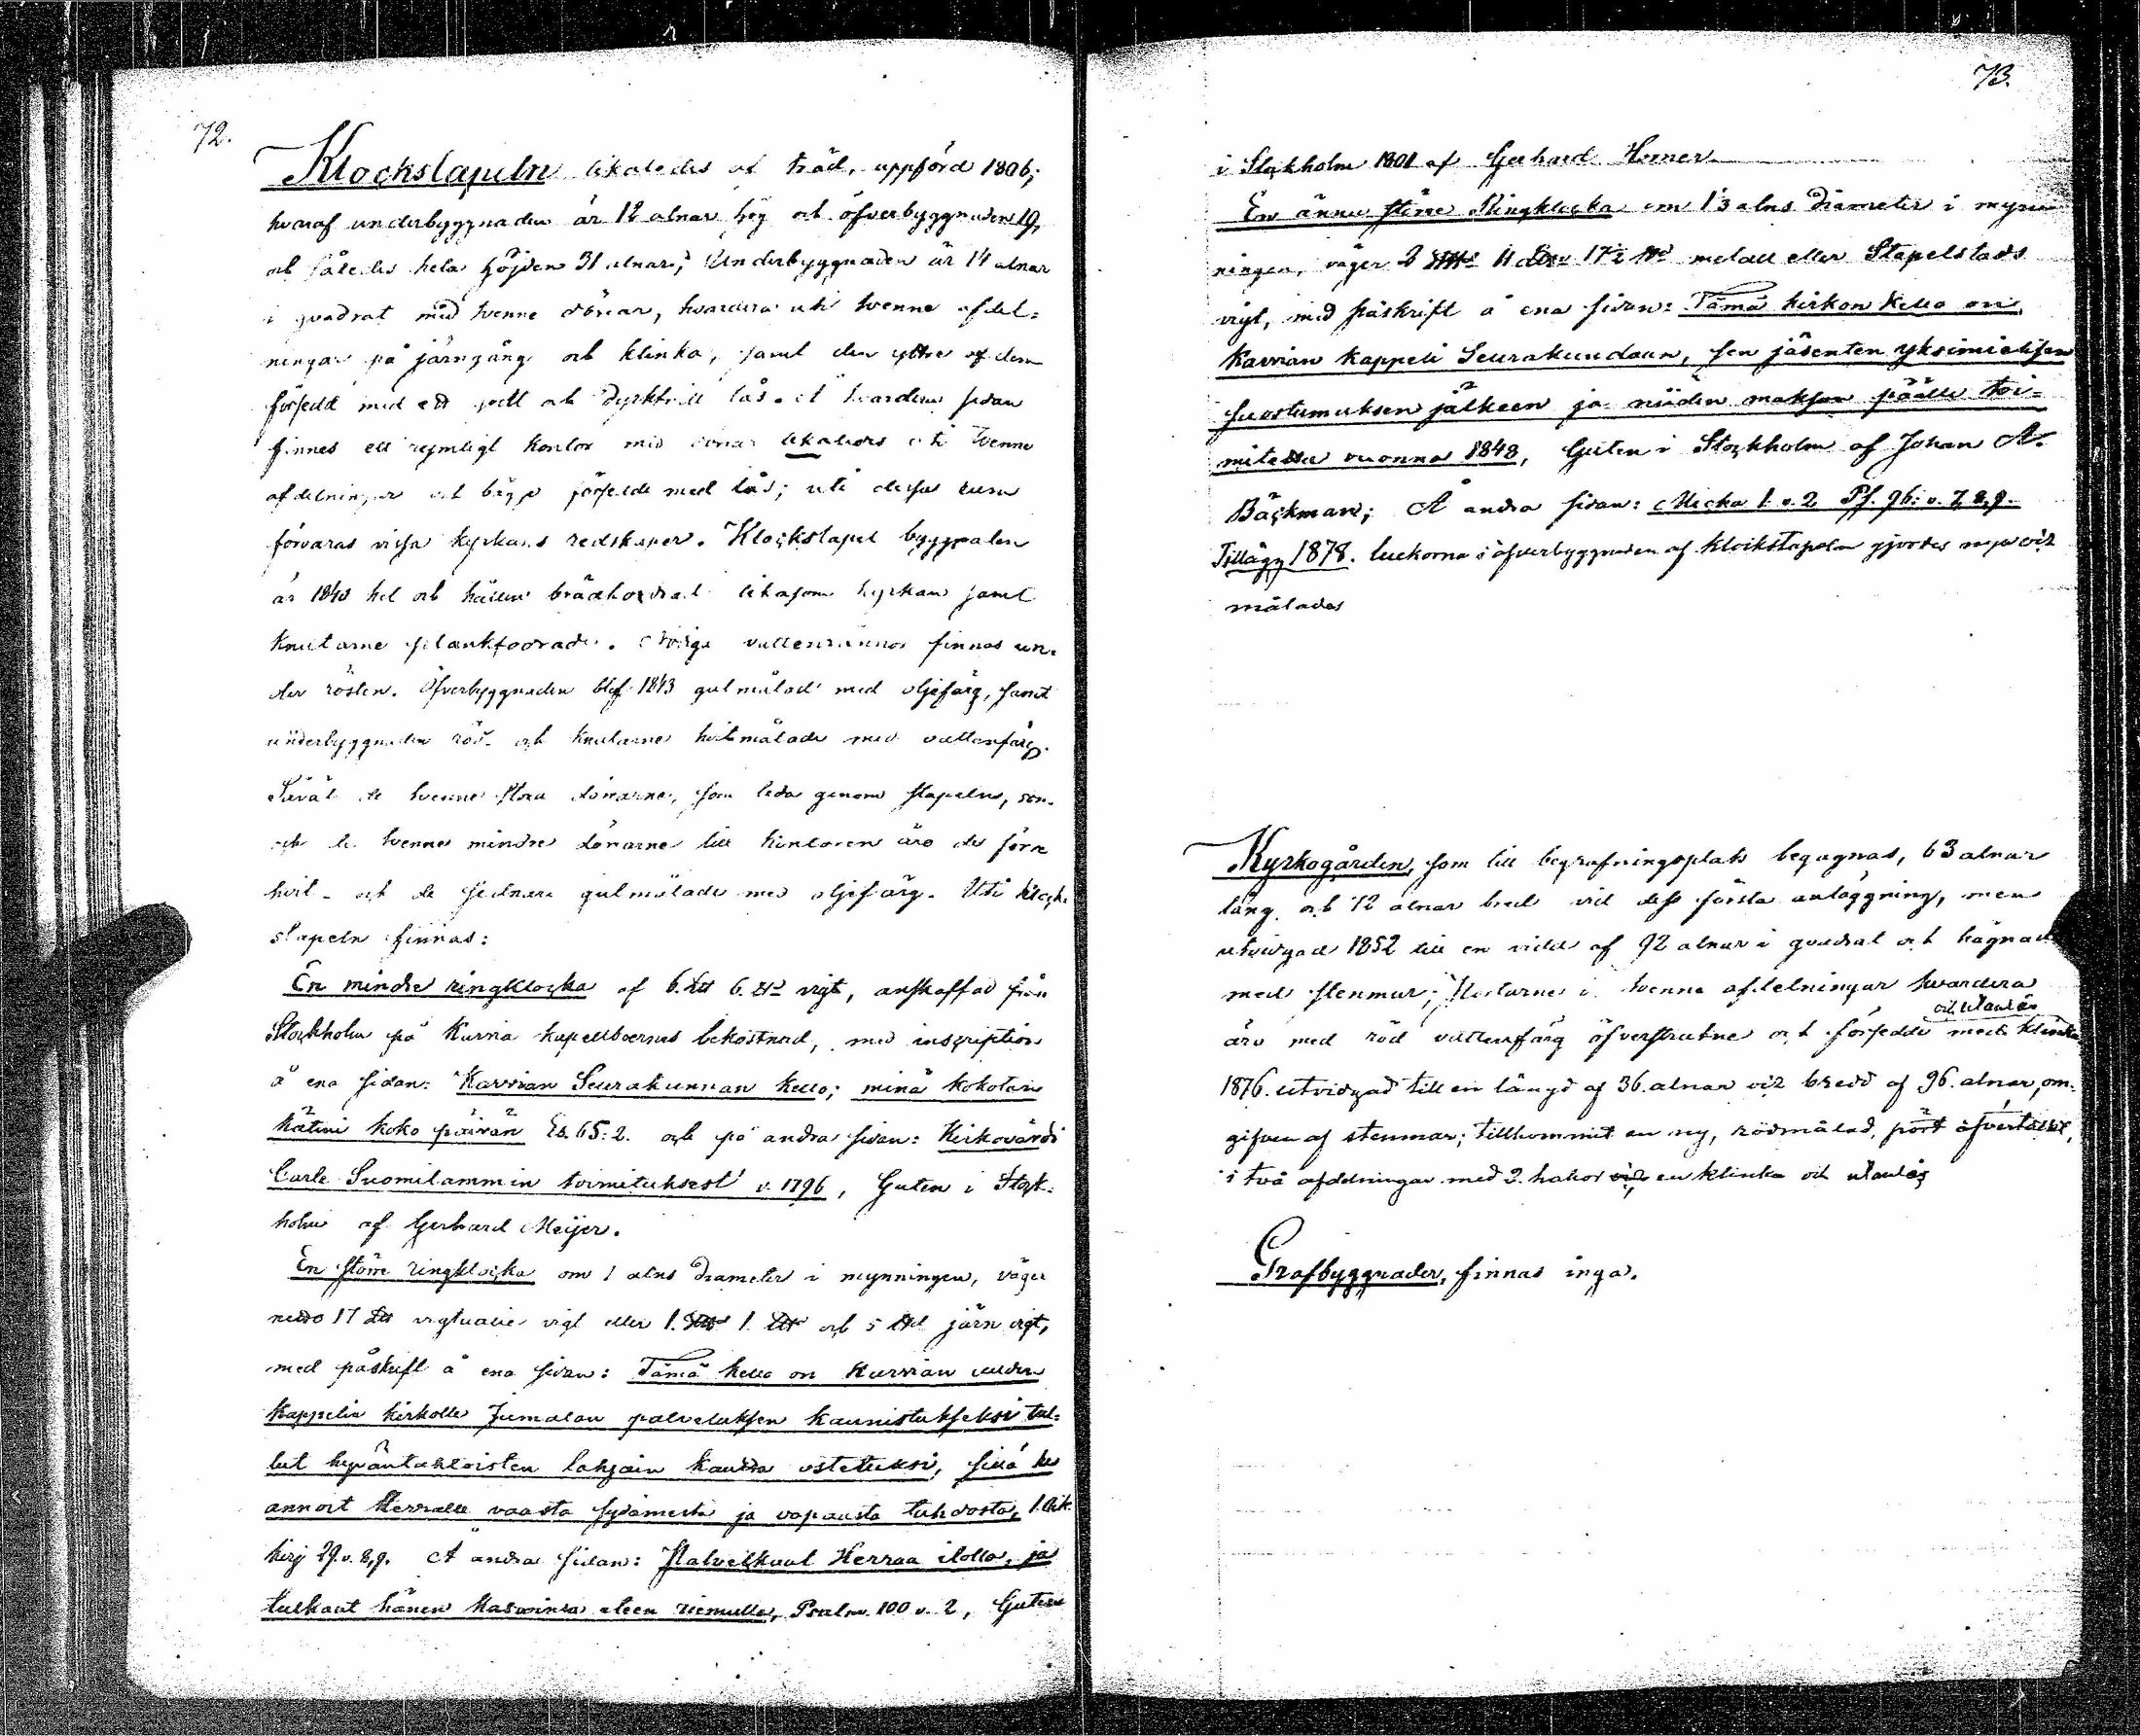 72.
Klockstapeln likaledes af träd, uppförd 1806;
hvaraf underbyggnaden är 12 alnar hög och öfverbyggnaden 19,
och således hela höjden 31 alnar; Underbyggnaden är 14 alnar
i qvadrat med tvenne dörrar, hvardera uti tvenne afdel=
ningar på järngång och klinka, samt den yttre af dem
försedd med ett godt och lås. å hvardera sidan
finnes ett rymligt kontor med dörrar likaledes uti tvenne
afdelningar och bägge försedde med lås; uti dessa rum
förvaras vissa kyrkans redskaper. Klockstapel byggnaden
är 1840 hel och hållen brädfordrad likasom kyrkan samt
knutarne plankfodrade. Nödige vattenrännor finnas un=
der rösten. Öfverbyggnaden blef 1843 gulmålad med oljefärg, samt
underbyggnaden röd- och knutarne hvitmålade med vattenfärg.
Såväl de tvenne stora dörrarne, som leda genom stapeln, som
och de tvenne mindre dörrarne till kontoren äro de förre
hvit- och de sednare gulmålade med oljefärg. Uti klock
stapeln finnas:
En mindre ringklocka af 6. L℔ 6. ℔ vigt, anskaffad från
Stockholm på Karvia kapellboernes bekostnad, med inscription
å ena sidan: Karvian Seurakunnan kello; minä kokotan
käteni koko päivän Es. 65: 2. och på andra sidan: Kirkovärdi
Carle Suomilammin toimituksest v. 1796, Guten i Stock=
holm af Gerhard Meijer.
En större ringklocka om 1 alns diameter i mynningen, väger
netto 17 L℔ victualie vigt eller 1. S℔ 1. L℔ och 5 ℔ järn vigt,
med påskrift å ena sidan: Tämä kello on Karvian uuden
kappelin kirkolle Jumalan palveluksen kaunistukseksi tul=
lut hyväntahtoisten lahjain kautta ostetuksi, sillä he
annoit Herralle vaasta sydämestä ja vapaasta tahdosta, 1. Aik.
kirj 29. v. 8,9. Å andra sidan: Palvelkaat Herraa ilolla, ja
tulkaat hänen kasvoinsa eteen riemulla, Psalm. 100 v. 2, Guten
73.
i Stockholm 1801 af Gerhard Horner.
En ännu större Ringklocka om 1⅓ alns diameter i myn
ningen, väger 2 S℔ 11 L℔ 17½ ℔ metall eller Stapelstads
vigt, med påskrift å ena sidan: Tämä kirkon kello on
Karvian kappeli Seurakundaan, sen jäsenten yksimielisen
suostumuksen jälkeen ja niiden makson päälle toi=
mitettu vuonna 1848, Guten i Stockholm af Johan A.
Bäckman; Å andra sidan: Micha 1. v. 2. Ps. 96: v. 7, 8, 9.
Tillägg 1878. luckorna i öfverbyggnaden af klockstapeln gjordes nya och
målades
Kyrkogården, som till begrafningsplats begagnas, 63 alnar
lång och 72 alnar bred vid dess första anläggning, men
utvidgad 1852 till en vidd af 92 alnar i qvadrat och hägnad
med stenmur; Portarne i tvenne afdelningar hvardera
och utanlås
äro med röd vattenfärg öfverstrukne och försedde med klinka
1876. utvidgad till en längd af 36. alnar och bredd af 96. alnar, om=
gifven af stenmur; tillkommit en ny, rödmålad, port öfvertäckt,
i två afdelningar med 2. hakor en klinka och utanlås
Grafbyggnader, finnas inga.